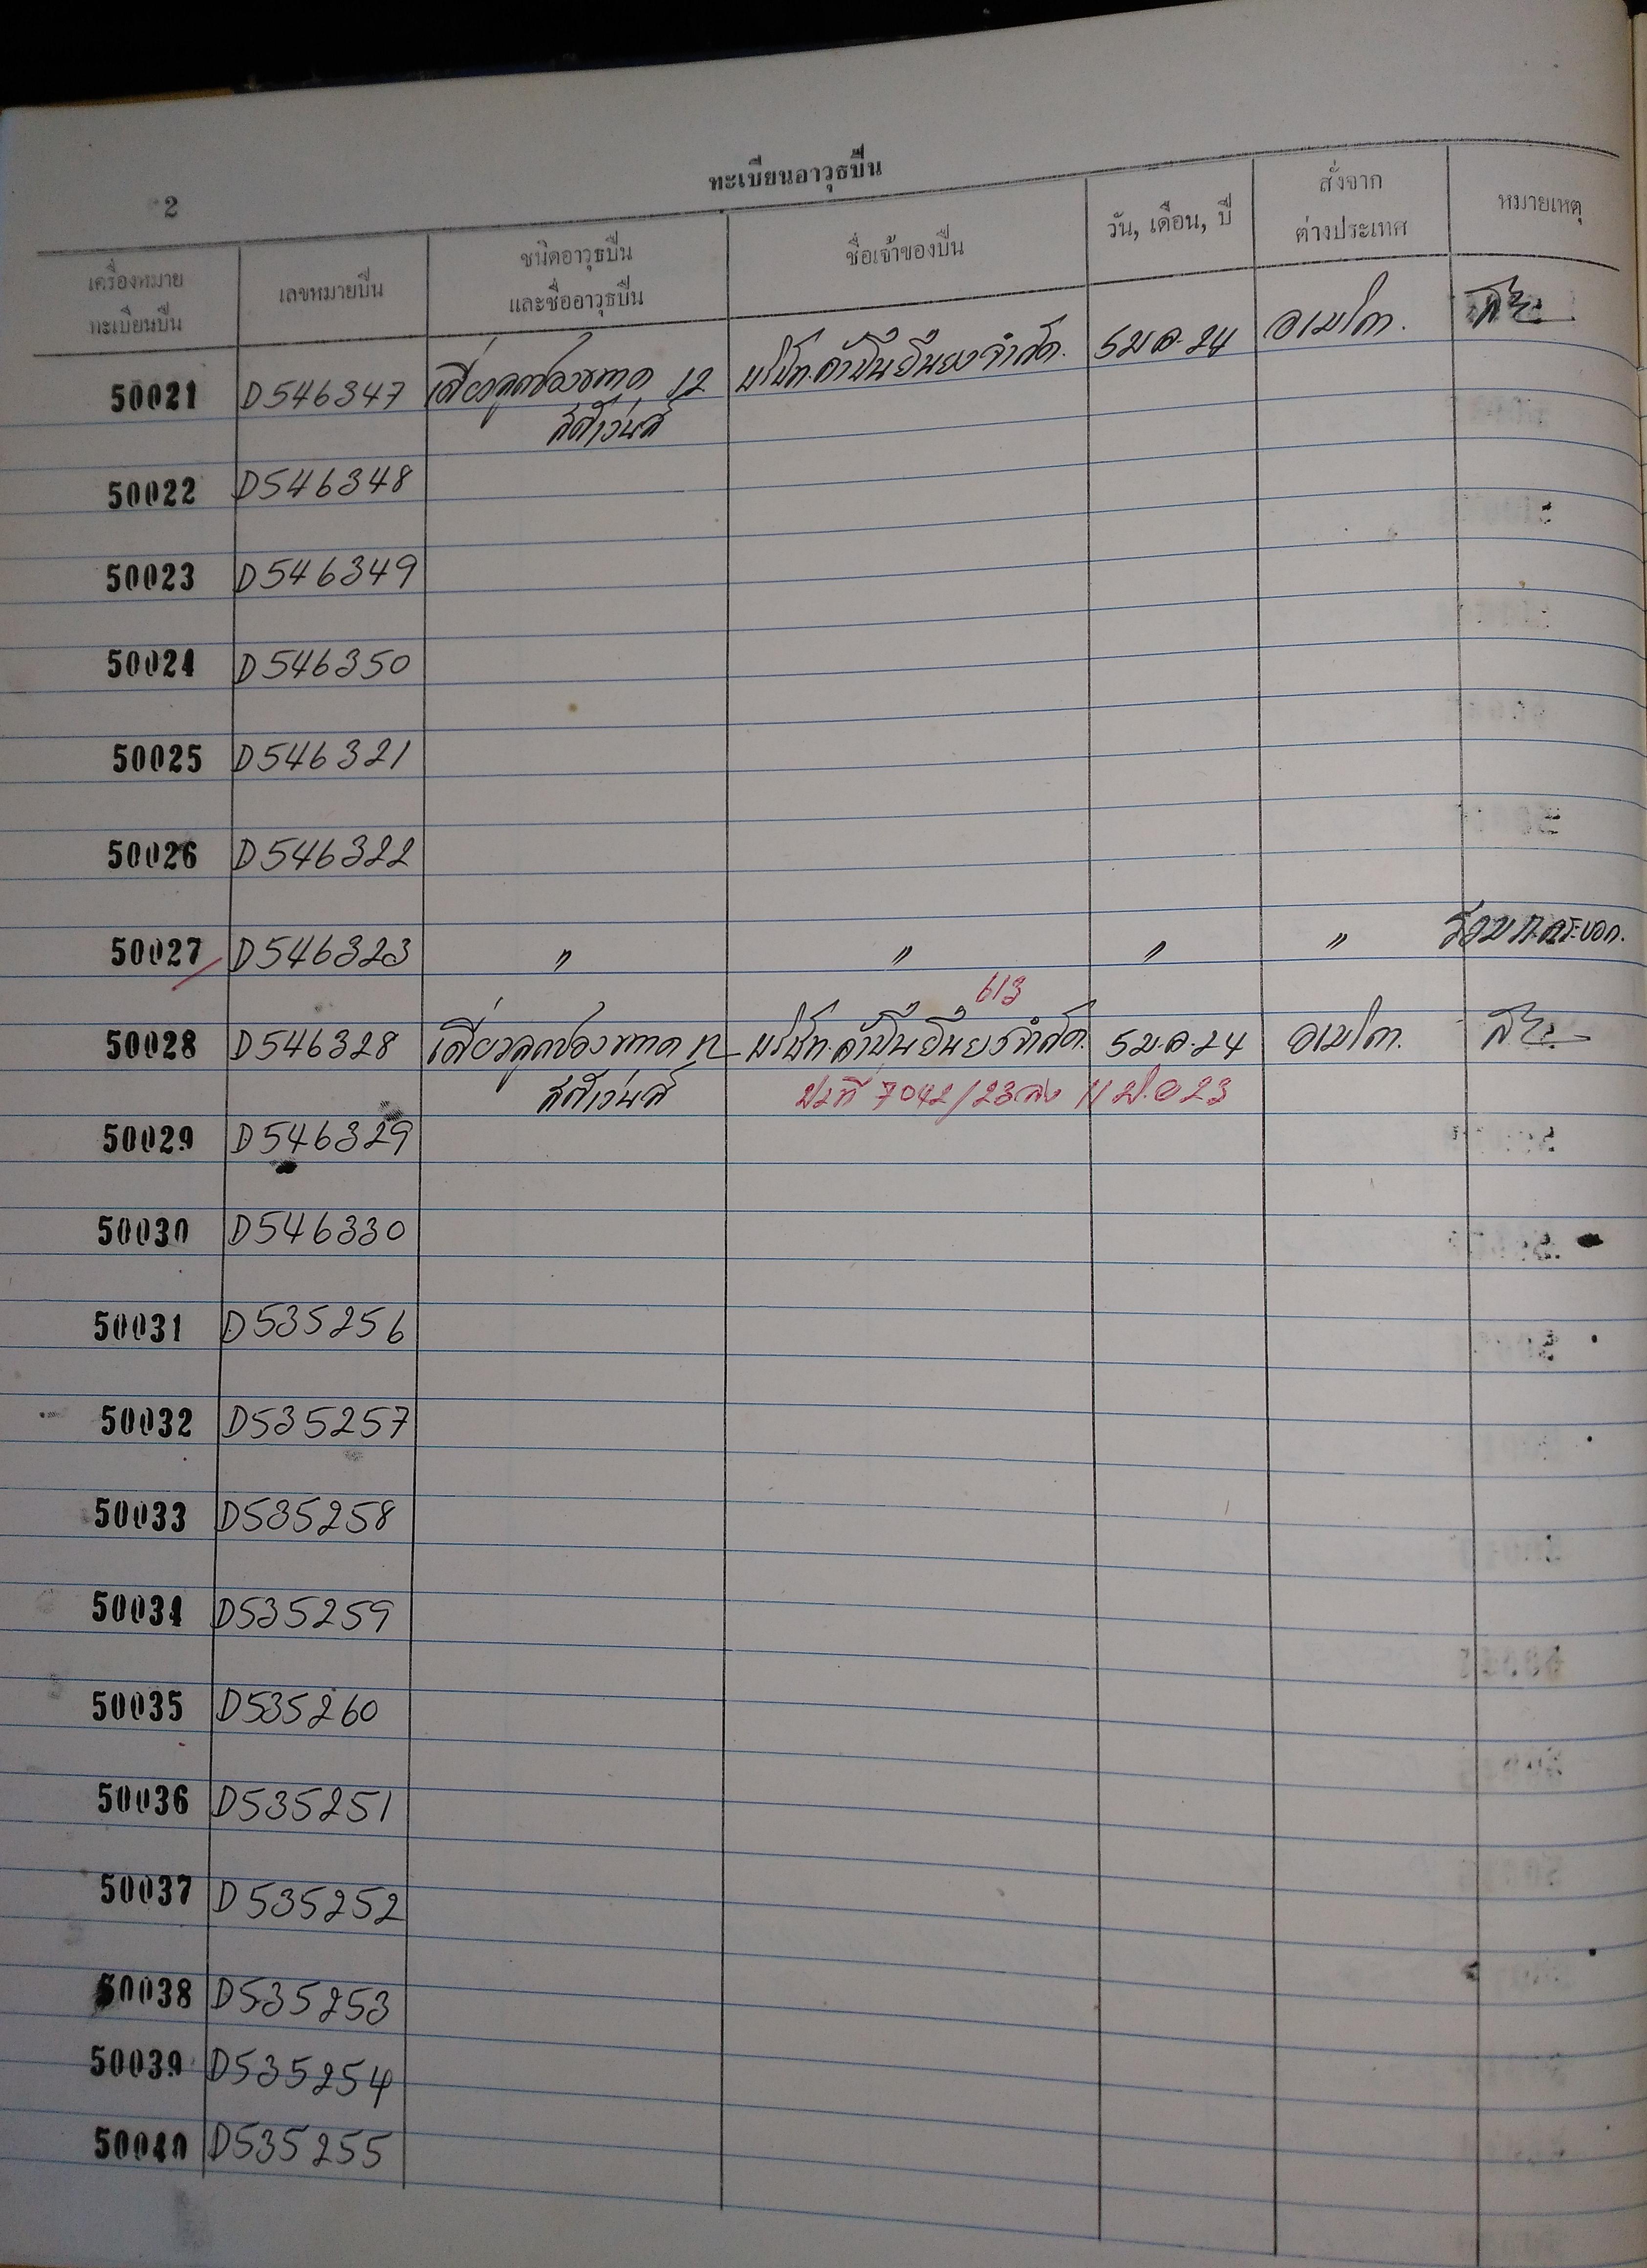 ทะเบียนอาวุธปืน
2
เครื่องหมาย
ทะเบียนปืน
เลขหมายปืน
ชนิดอาวุธปืน
และชื่ออาวุธปืน
ชื่อเจ้าของปืน
วัน, เดือน, ปี
สั่งจาก
ต่างประเทศ
หมายเหตุ
50021 D546347 เดี่ยวลูกซองขนาด 12 บริษัท.ค้าปืน จำกัด. 5 ม.ค. 24 อเมริกา.
50022 D546348
50023 D546349
50024 D546350
50025 D546321
50026 D546322
50027 D546323 " " " "
613
50028 D546328 เดี่ยวลูกซองขนาด 12 บริษัท.ค้าปืน จำกัด. 5 ม.ค. 24 อเมริกา.
ที่ 7042/23 ลง 11 23
50029 D546329
50030 D546330
50031 D535256
50032 D535257
50033 D535258
50034 D535259
50035 D535260
50036 D535251
50037 D535252
50038 D535253
50039 D535254
50040 D535255